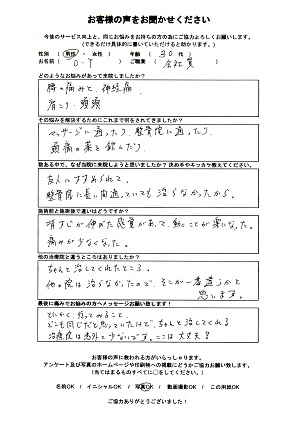 お客様の声をお聞かせください
今後のサービス向上と、同じお悩みをお持ちの方の為にご協力よろしくお願いします。
(できるだけ具体的に書いていただけると助かります。)
性別 ( 男性 ・ 女性 ) 年齢 ( 30 代 )
お名前( O.Y ) ご職業 ( 会社員 )
どのようなお悩みがあって来院しましたか?
腰の痛みと、神経痛、
肩こり・頭痛
その悩みを解決するためにこれまで何をされてきましたか?
マッサージに通ったり、整骨院に通ったり、
頭痛の薬を飲んだり
数ある中で、なぜ当院に来院しようと思いましたか? 決め手やキッカケ教えてください。
友人にすすめられて。
整骨院に長い間通っていても治らなかったから。
施術前と施術後で違いはどうですか?
背すじが伸びた感覚があって、動くことが楽になった。
痛みが少なくなった。
他の治療院と違うところはありましたか?
ちゃんと治してくれたところ。
他の院は治らなかったので、そこが一番違うかと
思います。
最後に痛みでお悩みの方へメッセージお願い致します!
とにかく、行ってみること。
どこも同じだと思っていたけど、ちゃんと治してくれる
治療院は意外と少ないです。ここは大丈夫!
お客様の声に救われる方がいらっしゃります。
アンケート及び写真のホームページや印刷物への掲載にどうかご協力お願い致します。
(当てはまるものすべてに○をしてください。)
名前OK / イニシャルOK / 写真OK / 動画撮影OK / この用紙OK
ご協力ありがとうございました!